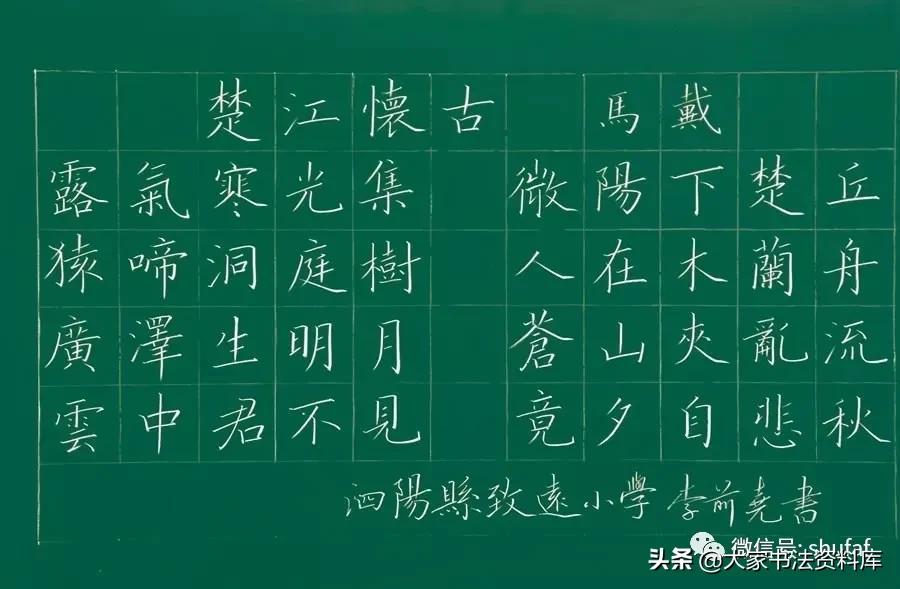 楚江懷古 馬戴
露氣寒光集 微陽下楚丘
猿啼洞庭樹 人在木蘭舟
廣澤生明月 蒼山夾亂流
雲中君不見 竟夕自悲秋
泗陽縣致遠小學 李前堯書
微信号: shufaf
头条 @大家书法资料库